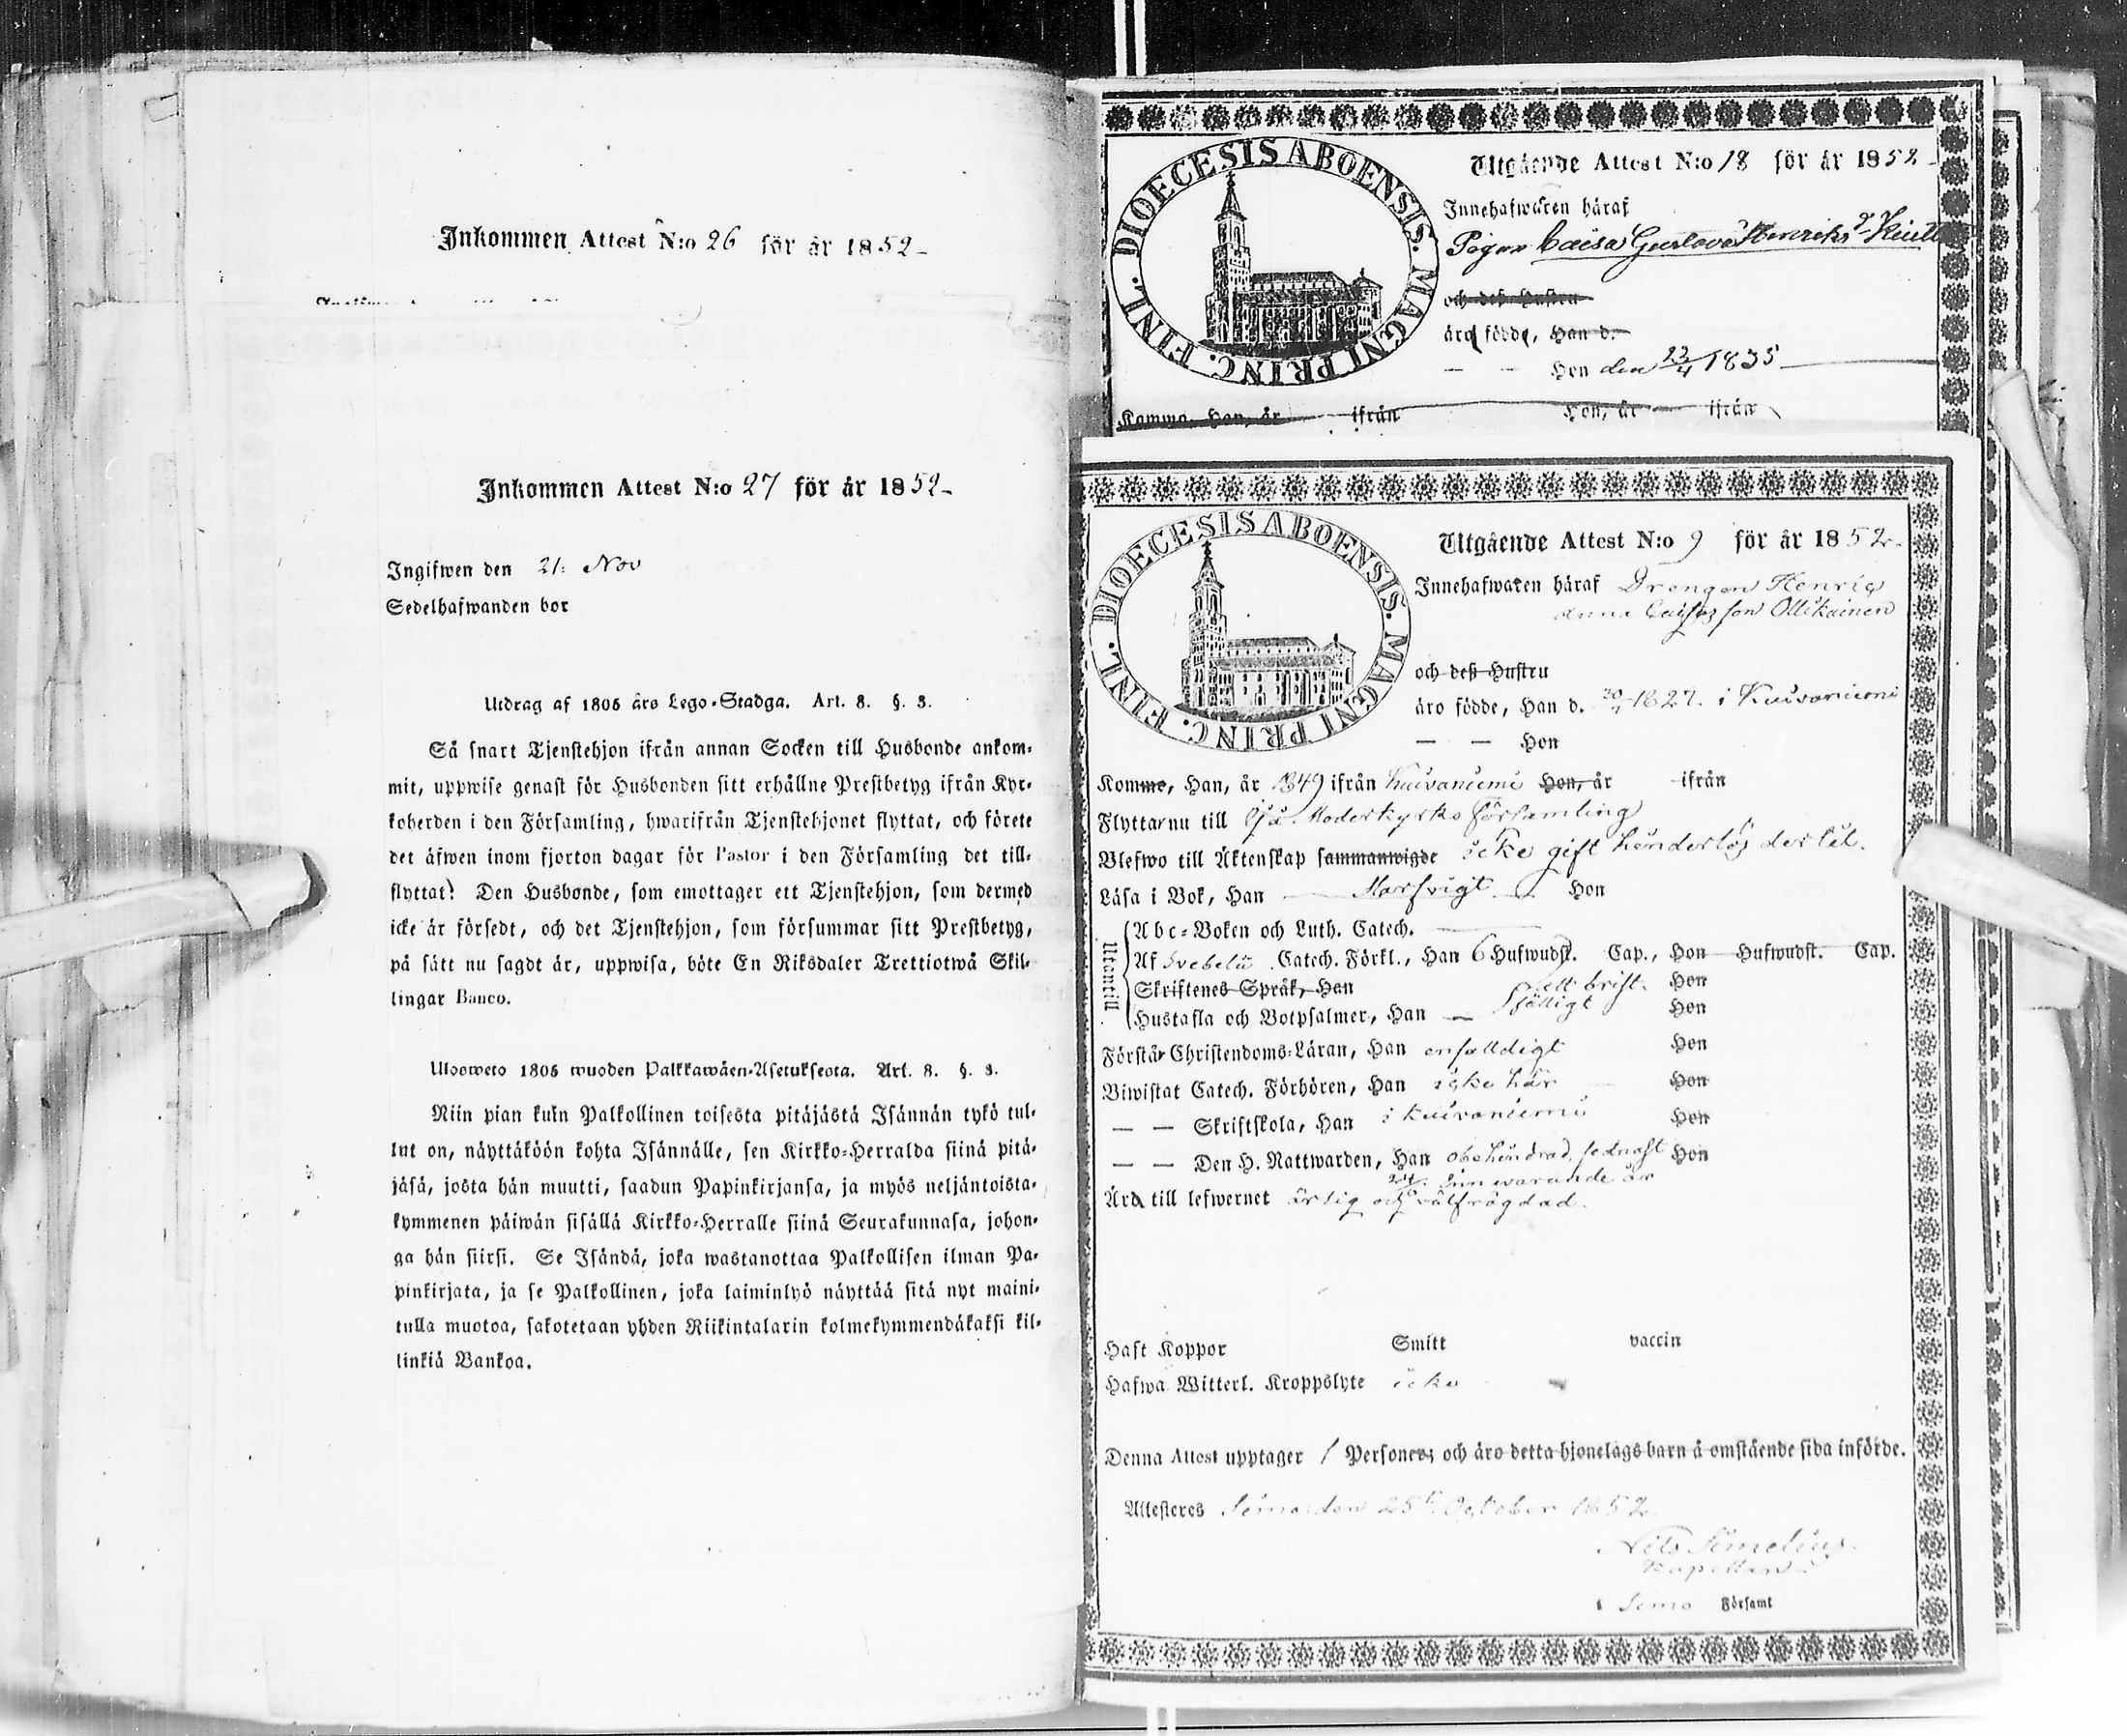 Inkommen Attest N:o 26 för år 1852
Inkommen Attest N:o 27 för år 1852
Ingifwen den 21: Nov
Sedelhafwanden bor
Utdrag af 1805 års Lego-Stadga. Art. 8. §. 3.
Så snart Tjenstehjon ifrån annan Socken till Husbonde ankom-
mit, uppwise genast för Husbonden sitt erhållne Prestbetyg ifrån Kyr-
koherden i den Församling, hwarifrån Tjenstehjonet flyttat, och förete
det äfwen inom fjorton dagar för Pastor i den Församling det till-
flyttat. Den Husbonde, som emottager ett Tjenstehjon, som dermed
icke är försedt, och det Tjenstehjon, som försummar sitt Prestbetyg,
på sätt nu sagdt är, uppwisa, böte En Riksdaler Trettiotwå Skil-
lingar Banco.
Ulosweto 1805 wuoden Palkkawäen-Asetuksesta. Art. 8. §. 3.
Niin pian kuin Palkollinen toisesta pitäjästä Isännän tykö tul-
lut on, näyttäköön kohta Isännälle, sen Kirkko-Herralda siinä pitä-
jäsä, josta hän muutti, saadun Papinkirjansa, ja myös neljäntoista-
kymmenen päiwän sisällä Kirkko-Herralle siinä Seurakunnasa, johon-
ga hän siirsi. Se Isändä, joka wastanottaa Palkollisen ilman Pa-
pinkirjata, ja se Palkollinen, joka laiminlyö näyttää sitä nyt maini-
tulla muotoa, sakotetaan yhden Riikintalarin kolmekymmendäkaksi kil-
linkiä Bankoa.
DIOECESIS ABOENSIS. MAGNI PRINC. FINL.
Utgående Attest N:o 18 för år 1852
Innehafwaren häraf
Pigan Caisa Gustava Henriks
och deß Hustru
äro födde, Han d.
— — Hon den 23/4 1835
Komma, Han, år ifrån Hon, år ifrån
DIOECESIS ABOENSIS. MAGNI PRINC. FINL.
Utgående Attest N:o 9 för år 1852
Innehafwaren häraf Drengen Henric
Anna Caisas son Ollikainen
och deß Hustru
äro födde, Han d. 1827. i Kuivaniemi
— — Hon
Kommo, Han, år 1849 ifrån Kuivaniemi Hon, år ifrån
Flyttar nu till Ijo Moderkyrko församling
Blefwo till Äktenskap sammanwigde icke gift hinderlös dertill.
Läsa i Bok, Han Hon
Utantill
Abc-Boken och Luth. Catech.
Af Svebelii Catech. Förkl., Han 6 Hufwudst. Cap., Hon Hufwudst. Cap.
Skriftenes Språk, Han Hon
Hustafla och Botpsalmer, Han bristfälligt Hon
Förstår Christendoms-Läran, Han enfaldigt Hon
Biwistat Catech. Förhören, Han icke här Hon
— — Skriftskola, Han i Kuivaniemi Hon
— — Den H. Nattwarden, Han obehindrad, sednast Hon
24/ innevarande år
Ärd till lefwernet ärlig och välfrägdad.
Haft Koppor Smitt vaccin
Hafwa Witterl. Kroppslyte icke
Denna Attest upptager 1 Personer, och äro detta hjonelags barn å omstående sida införde.
Attesteres Simo den 25 October 1852
Nils Simelius
Kapellan
i Simo Församl